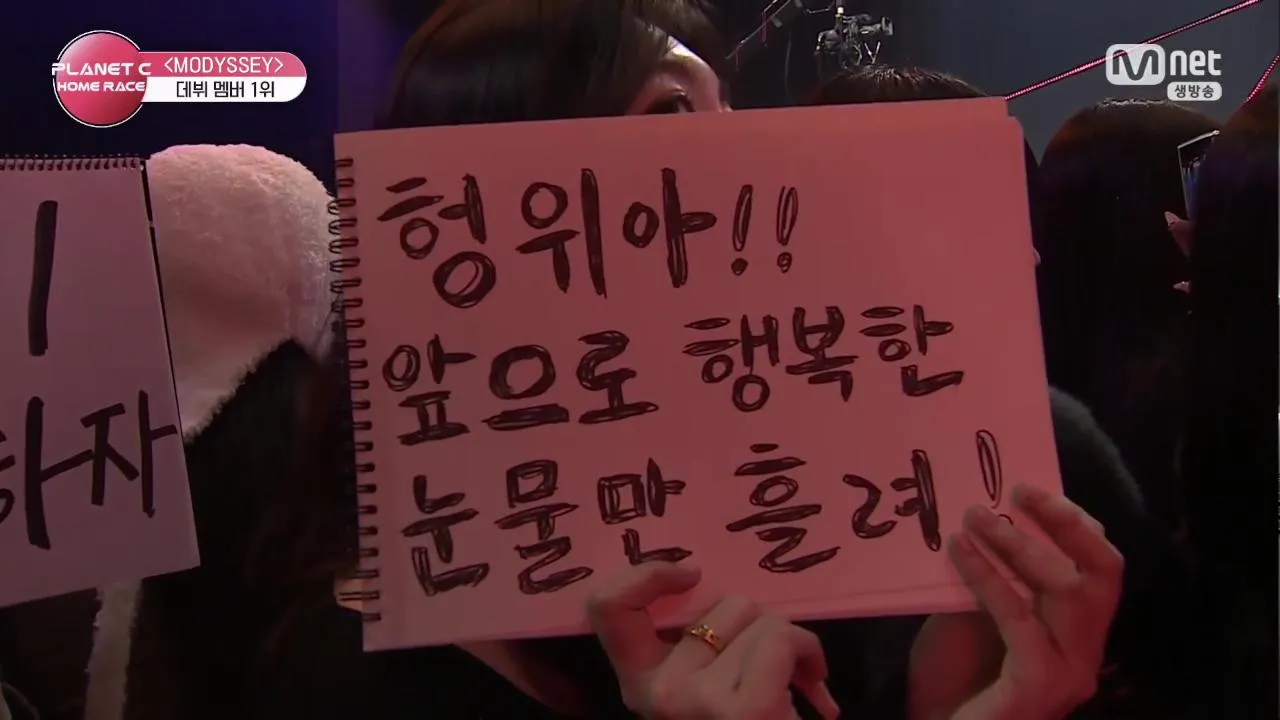 PLANET C
HOME RACE
<MODYSSEY>
데뷔 멤버 1위
M net
생방송
헝위아!!
앞으로 행복한
눈물만 흘려!
하자